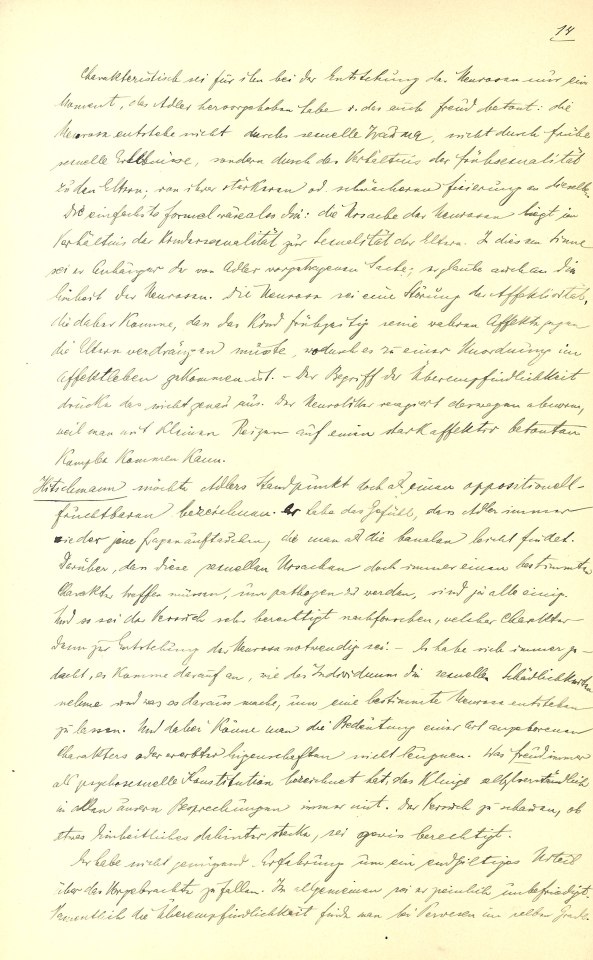 14
Charakteristisch sei für ihn bei der Entstehung der Neurosen nur ein
Moment, das Adler hervorgehoben habe u. das auch Freud betont: die
Neurose entstehe nicht durch sexuelle Traumen, nicht durch frühe
sexuelle Erlebnisse, sondern durch das Verhältnis der Frühsexualität
zu den Eltern, von ihrer stärkeren od. schwächeren Fixierung an dieselben.
Die einfachste Formel wäre also die: die Ursache der Neurosen liegt im
Verhältnis der Kindersexualität zur Sexualität der Eltern. In diesem Sinne
sei er Anhänger der von Adler vorgetragenen Sache; er glaube auch an die
Einheit der Neurosen. Die Neurose sei eine Störung der Affektivität,
die daher komme, dass das Kind frühzeitig seine wahren Affekte gegen
die Eltern verdrängen müsste, wodurch es zu einer Unordnung im
Affektleben gekommen ist. – Der Begriff der Überempfindlichkeit
drücke das nicht genau aus. Der Neurotiker reagiert deswegen abnorm,
weil man mit kleinen Reizen auf einen stark affektiv betonten
Komplex kommen kann.
Hitschmann möchte Adlers Standpunkt doch als einen oppositionell-
fruchtbaren bezeichnen. Er habe das Gefühl, dass Adler immer
wieder jene Fragen aufzusuchen, die man als die banalen leicht findet.
Darüber, dass diese sexuellen Ursachen doch immer einen bestimmten
Charakter treffen müssen, um pathogen zu werden, sind ja alle einig.
Und so sei der Versuch sehr berechtigt nachforschen, welcher Charakter
denn zur Entstehung der Neurose notwendig sei. – Er habe sich immer ge-
dacht, es komme darauf an, wie das Individuum die sexuellen Schädlichkeiten
nehme und was es daraus mache, um eine bestimmte Neurose entstehen
zu lassen. Und dabei könne man die Bedeutung einer Art angeborenen
Charakters oder ererbter Eigenschaften nicht leugnen. Was Freud immer
als psychosexuelle Konstitution bezeichnet hat, das klinge selbstverständlich
in allen unsern Besprechungen immer mit. Der Versuch zu schauen, ob
etwas Einheitliches dahinter stecke, sei gewiss berechtigt.
Er habe nicht genügend Erfahrung um ein endgiltiges Urteil
über das Vorgebrachte zu fällen. Im allgemeinen sei er peinlich unbefriedigt.
Namentlich die Überempfindlichkeit finde man bei Perversen im selben Grade.